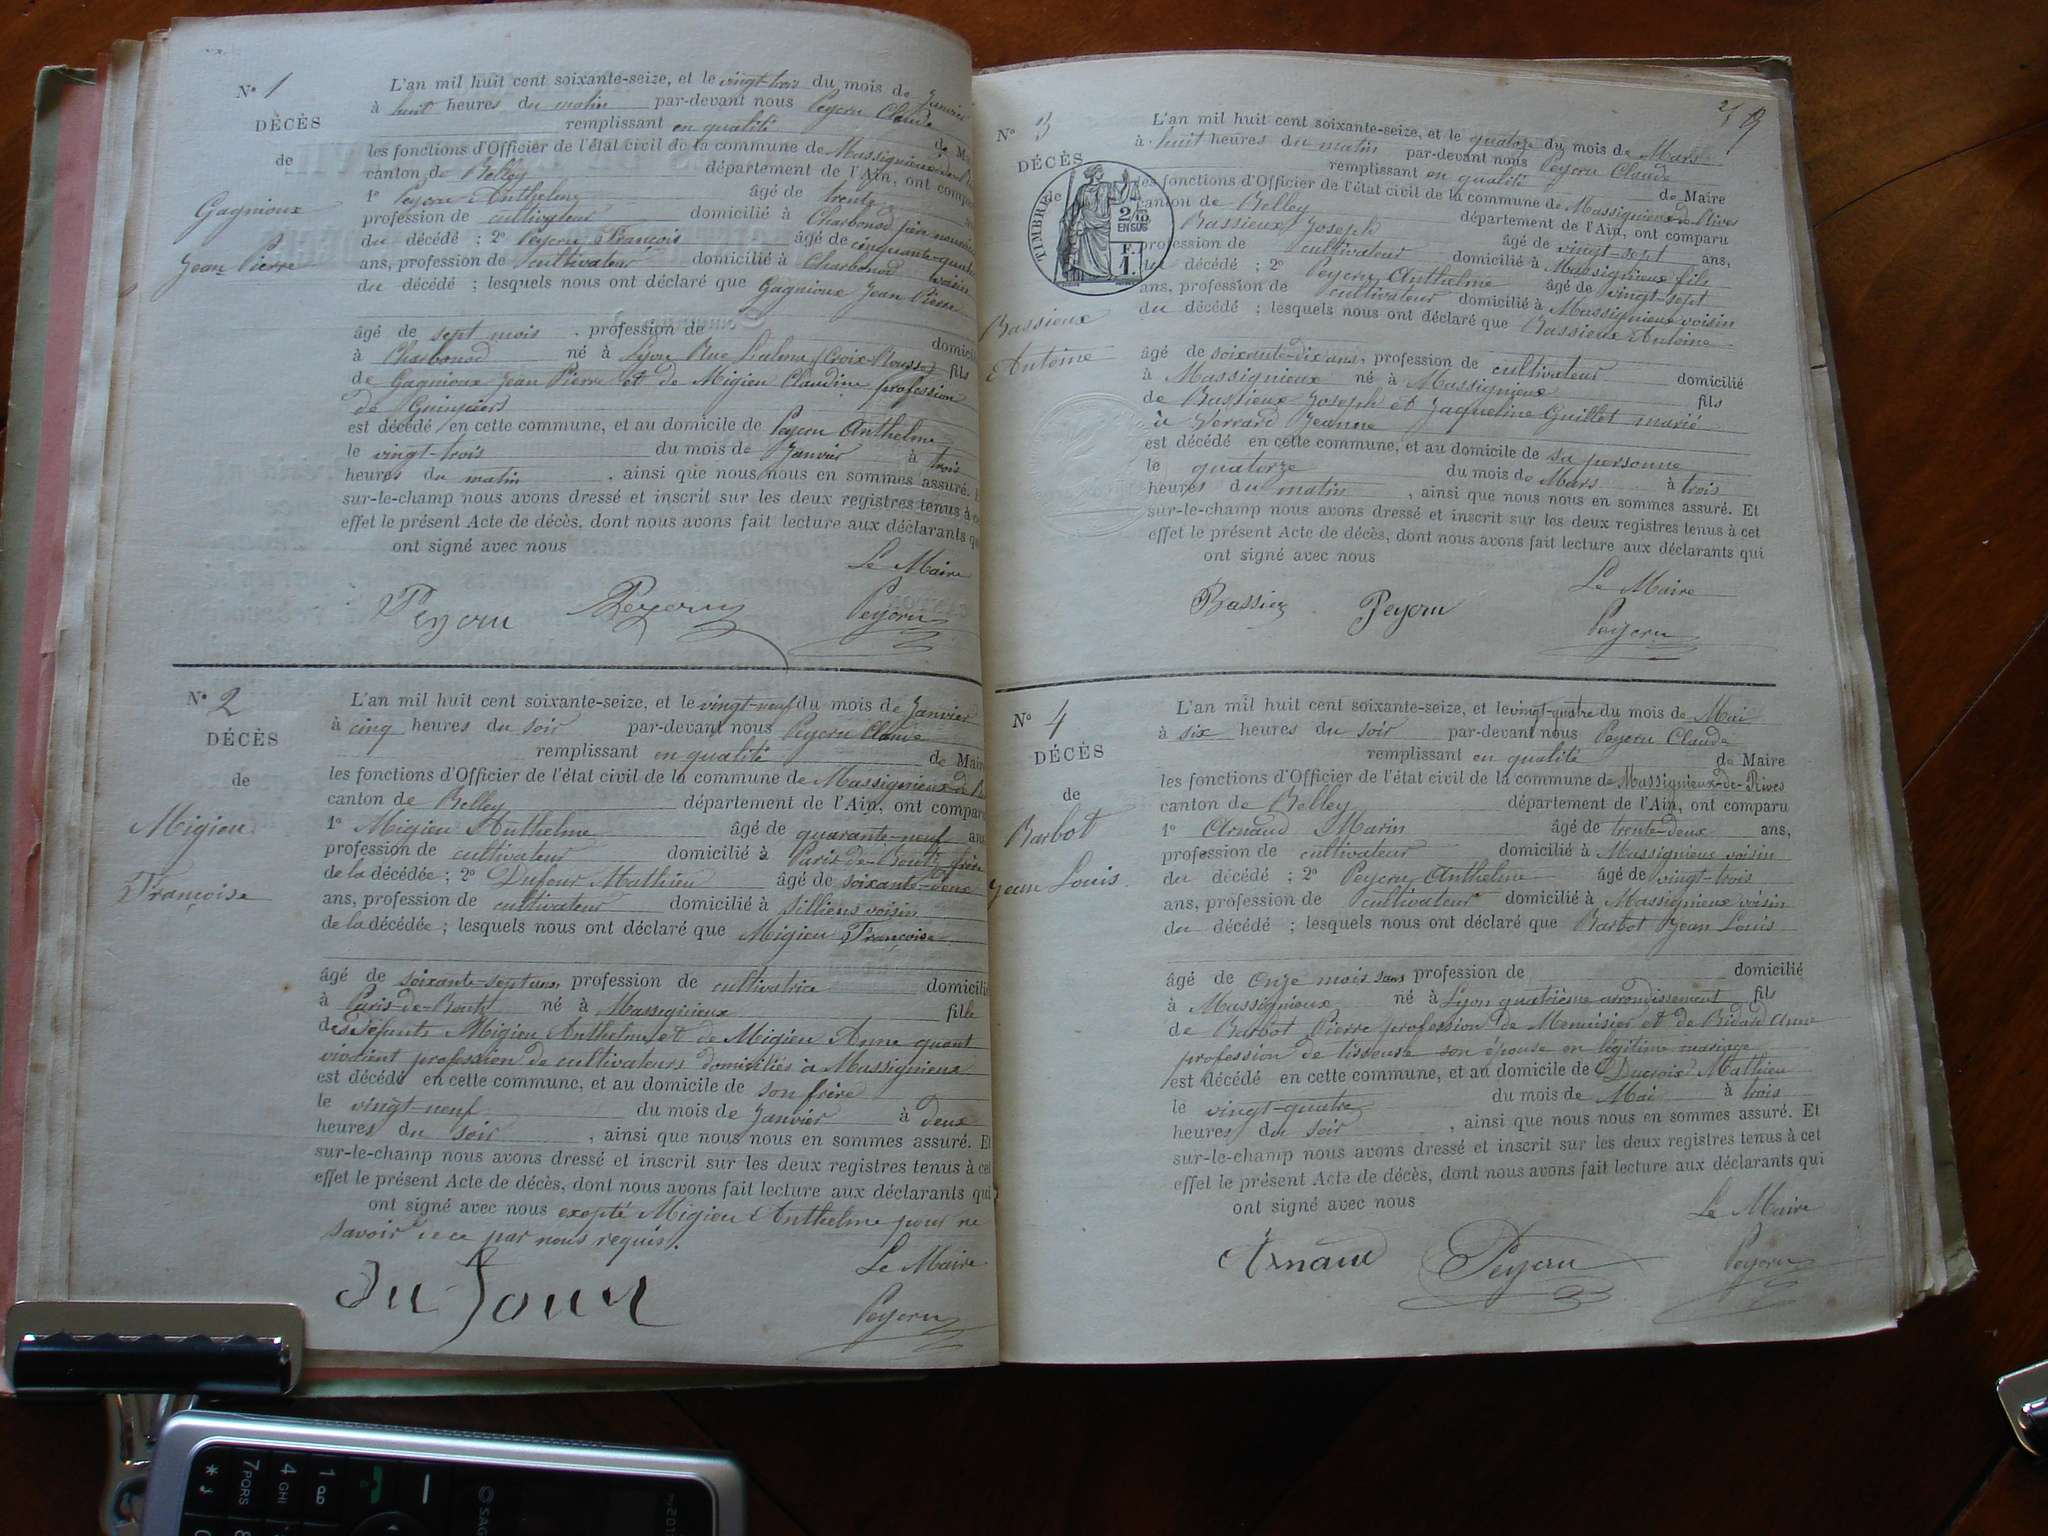 N° 1
DÉCÈS
de
Gagnioux
Jean Pierre
L'an mil huit cent soixante-seize, et le vingt-trois du mois de Janvier
à huit heures du matin par-devant nous Peyeru Claude
remplissant en qualité de Ma
les fonctions d'Officier de l'état civil de la commune de Massignieux-de-Ri
canton de Belley département de l'Ain, ont compa
1° Peyeru Anthelme âgé de trente
profession de cultivateur domicilié à Charbonod
du décédé ; 2° Peyeru François âgé de cinquante-quatre
ans, profession de cultivateur domicilié à Charbonod voisin
du décédé ; lesquels nous ont déclaré que Gagnioux Jean Pierre
âgé de sept mois profession de domicilié
à Charbonod né à Lyon Rue (Croix-Rousse) fils
de Gagnioux Jean Pierre et de Migieu Claudine profession
de
est décédé en cette commune, et au domicile de Peyeru Anthelme
le vingt-trois du mois de Janvier à trois
heures du matin , ainsi que nous nous en sommes assuré. E
sur-le-champ nous avons dressé et inscrit sur les deux registres tenus à ce
effet le présent Acte de décès, dont nous avons fait lecture aux déclarants qu
ont signé avec nous
Le Maire
Peyeru Peyeru Peyeru
N° 2
DÉCÈS
de
Migieu
Françoise
L'an mil huit cent soixante-seize, et le vingt-neuf du mois de Janvier
à cinq heures du soir par-devant nous Peyeru Claude
remplissant en qualité de Maire
les fonctions d'Officier de l'état civil de la commune de Massignieux-de-Ri
canton de Belley département de l'Ain, ont comparu
1° Migieu Anthelme âgé de quarante-neuf ans
profession de cultivateur domicilié à Paris-de-Boutz frère
de la décédée ; 2° Dufour Mathieu âgé de soixante-deux
ans, profession de cultivateur domicilié à Silliens voisin
de la décédée ; lesquels nous ont déclaré que Migieu Françoise
âgé de soixante-sept ans profession de cultivatrice domicilié
à Paris-de-Boutz né à Massignieux fille
des défunts Migieu Anthelme et de Migieu Anne quant
vivaient profession de cultivateurs domiciliés à Massignieux
est décédé en cette commune, et au domicile de son frère
le vingt-neuf du mois de Janvier à deux
heures du soir , ainsi que nous nous en sommes assuré. Et
sur-le-champ nous avons dressé et inscrit sur les deux registres tenus à cet
effet le présent Acte de décès, dont nous avons fait lecture aux déclarants qui
ont signé avec nous exepté Migieu Anthelme pour ne
savoir de ce par nous requis.
Le Maire
Dufour Peyeru
N° 3
DÉCÈS
de
TIMBRE
2/10
EN SUS
F.
1.
Bassieux
Antoine
L'an mil huit cent soixante-seize, et le quatorze du mois de Mars
à huit heures du matin par-devant nous Peyeru Claude
remplissant en qualité de Maire
les fonctions d'Officier de l'état civil de la commune de Massignieux-de-Rives
canton de Belley département de l'Ain, ont comparu
Bassieux Joseph âgé de vingt-sept ans,
profession de cultivateur domicilié à Massignieux fils
du décédé ; 2° Peyeru Anthelme âgé de vingt-sept
ans, profession de cultivateur domicilié à Massignieux voisin
du décédé ; lesquels nous ont déclaré que Bassieux Antoine
âgé de soixante-dix ans, profession de cultivateur domicilié
à Massignieux né à Massignieux fils
de Bassieux Joseph et Jaqueline Guillet marié
à Verrard Jeanne
est décédé en cette commune, et au domicile de sa personne
le quatorze du mois de Mars à trois
heures du matin , ainsi que nous nous en sommes assuré. Et
sur-le-champ nous avons dressé et inscrit sur les deux registres tenus à cet
effet le présent Acte de décès, dont nous avons fait lecture aux déclarants qui
ont signé avec nous
Le Maire
Bassieu Peyeru Peyeru
N° 4
DÉCÈS
de
Barbot
Jean Louis
L'an mil huit cent soixante-seize, et le vingt-quatre du mois de Mai
à six heures du soir par-devant nous Peyeru Claude
remplissant en qualité de Maire
les fonctions d'Officier de l'état civil de la commune de Massignieux-de-Rives
canton de Belley département de l'Ain, ont comparu
1° Arnaud Marin âgé de trente-deux ans,
profession de cultivateur domicilié à Massignieux voisin
du décédé ; 2° Peyeru Anthelme âgé de vingt-trois
ans, profession de cultivateur domicilié à Massignieux voisin
du décédé ; lesquels nous ont déclaré que Barbot Jean Louis
âgé de onze mois sans profession de domicilié
à Massignieux né à Lyon quatrième arrondissement fils
de Barbot Pierre profession de Menuisier et de Bidard Anne
profession de tisseuse son épouse en légitime mariage
est décédé en cette commune, et au domicile de Ducroix Mathieu
le vingt-quatre du mois de Mai à trois
heures du soir , ainsi que nous nous en sommes assuré. Et
sur-le-champ nous avons dressé et inscrit sur les deux registres tenus à cet
effet le présent Acte de décès, dont nous avons fait lecture aux déclarants qui
ont signé avec nous
Le Maire
Arnaud Peyeru Peyeru
* 7 PQRS 4 GHI 1
SAG